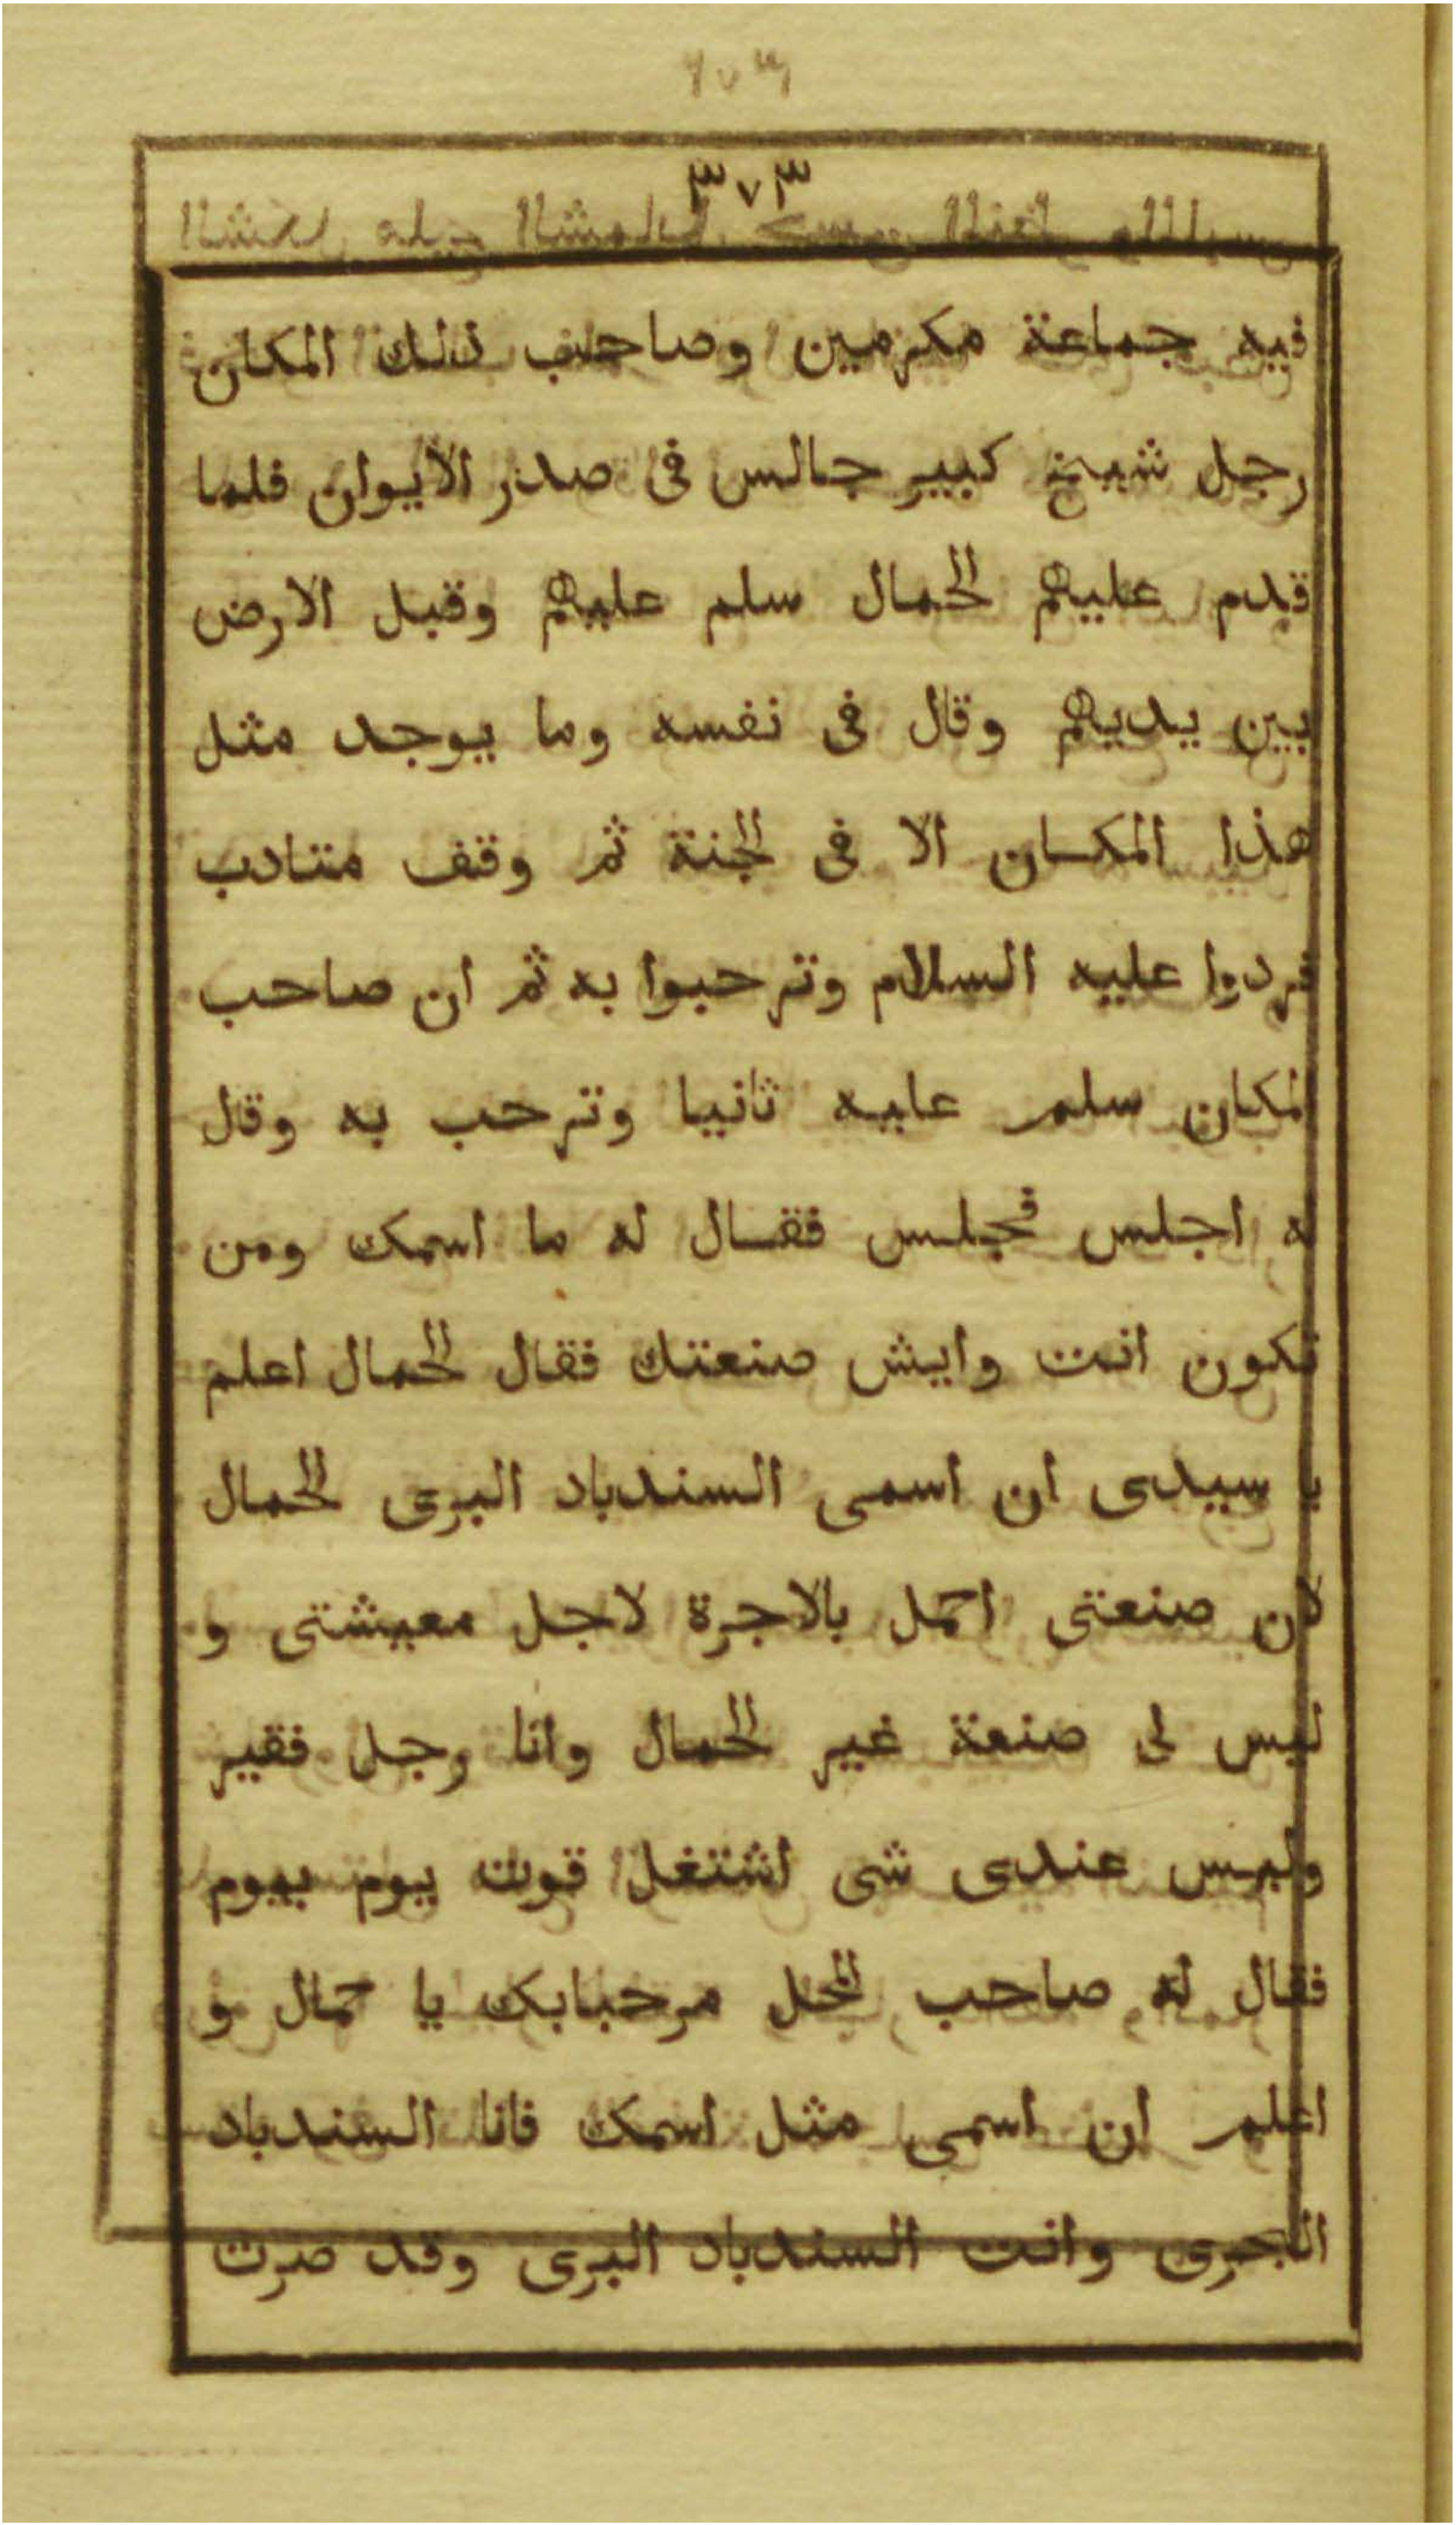 ٣٧٣
فيه جماعة مكرمين وصاحب ذلك المكان
رجل شيخ كبير جالس فى صدر الايوان فلما
قدم عليهم الحمال سلم عليهم وقبل الارض
بين يديهم وقال فى نفسه وما يوجد مثل
هذا المكان الا فى الجنة ثم وقف متادب
فردوا عليه السلام وترحبوا به ثم ان صاحب
المكان سلم عليه ثانيا وترحب به وقال
له اجلس فجلس فقال له ما اسمك ومن
تكون انت وايش صنعتك فقال الحمال اعلم
يا سيدى ان اسمى السندباد البرى الحمال
لان صنعتى احمل بالاجرة لاجل معيشتى و
ليس لى صنعة غير الحمال وانا رجل فقير
وليس عندى شى اشتغل قوت يوم بيوم
فقال له صاحب المحل مرحبابك يا حمال و
اعلم ان اسمى مثل اسمك فانا السندباد
البحرى وانت السندباد البرى وقد صرت